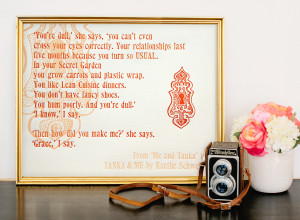 'You're dull,' she says, 'you can't even
cross your eyes correctly. Your relationships last
five months because you turn so USUAL.
In your Secret Garden
you grow carrots and plastic wrap.
You like Lean Cuisine dinners.
You don't have fancy shoes.
You hum poorly. And you're dull.'
'I know,' I say.
Then how did you make me?' she says.
'Grace,' I say.
From 'Me and Tanka'
TANKA & ME by Kaethe Schw